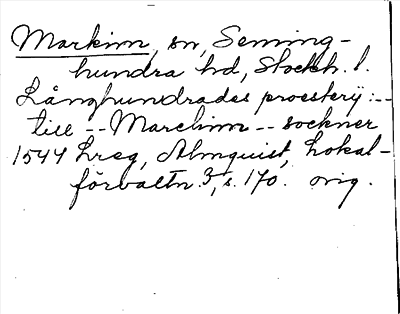 Markim, sn, Seming-
hundra hd, Stockh. l.
Långhundrades prosterij: --
till -- Marchim -- sockner
1544 Lreg, Almquist, Lokal-
förvaltn. 3, s. 170. orig.